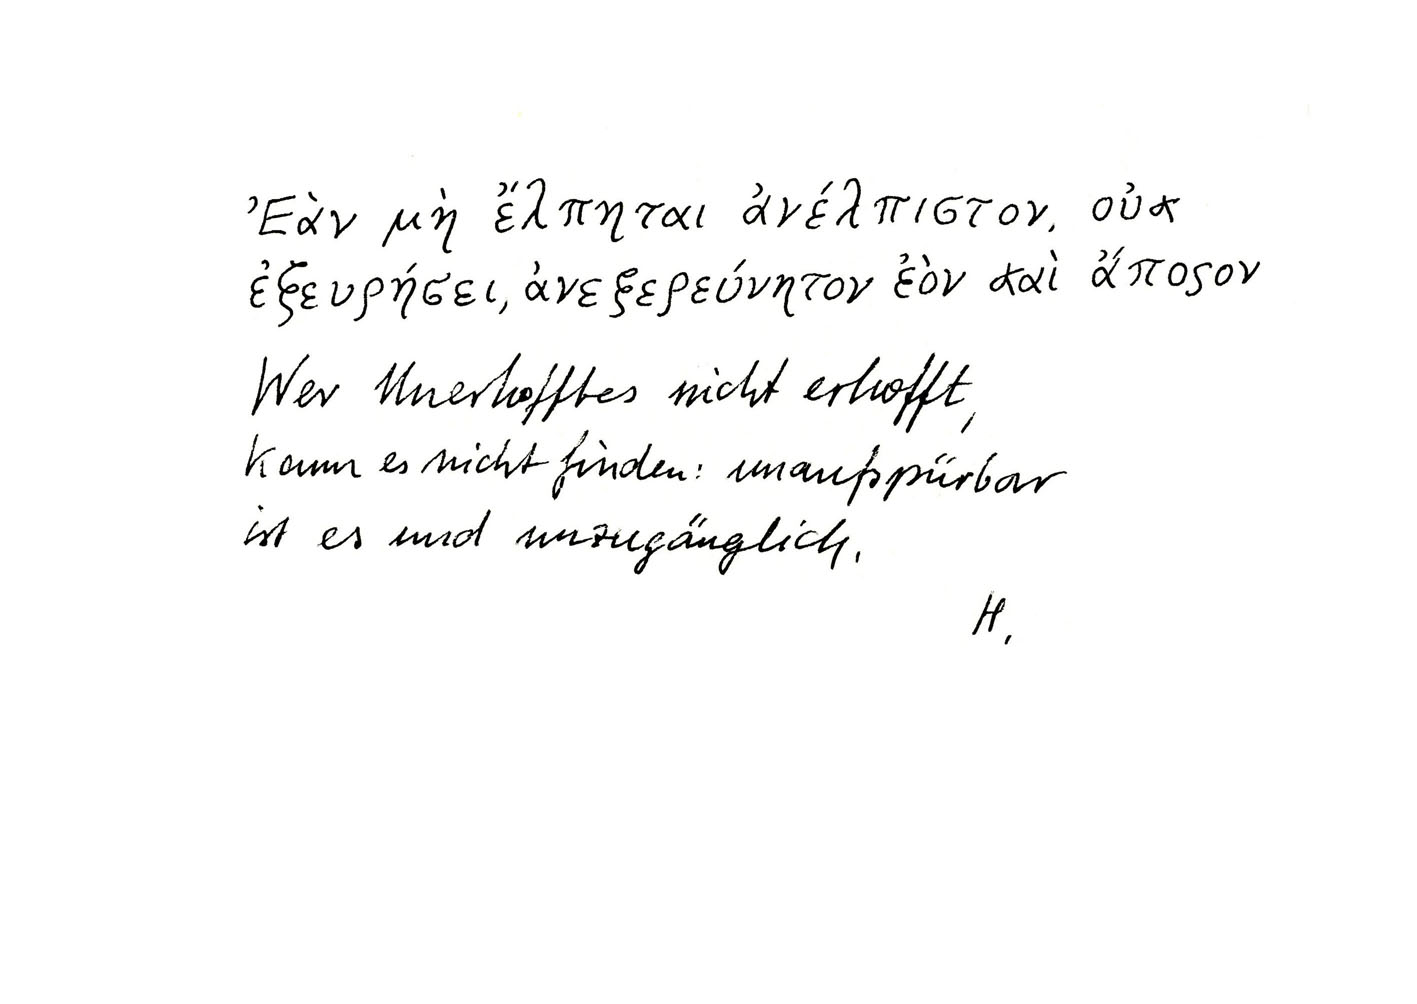 Ἐὰν μὴ ἔλπηται ἀνέλπιστον, οὐκ
ἐξευρήσει, ἀνεξερεύνητον ἐὸν καὶ ἄποςον
Wer Unerhofftes nicht erhofft,
kann es nicht finden: unaufspürbar
ist es und unzugänglich.
H.